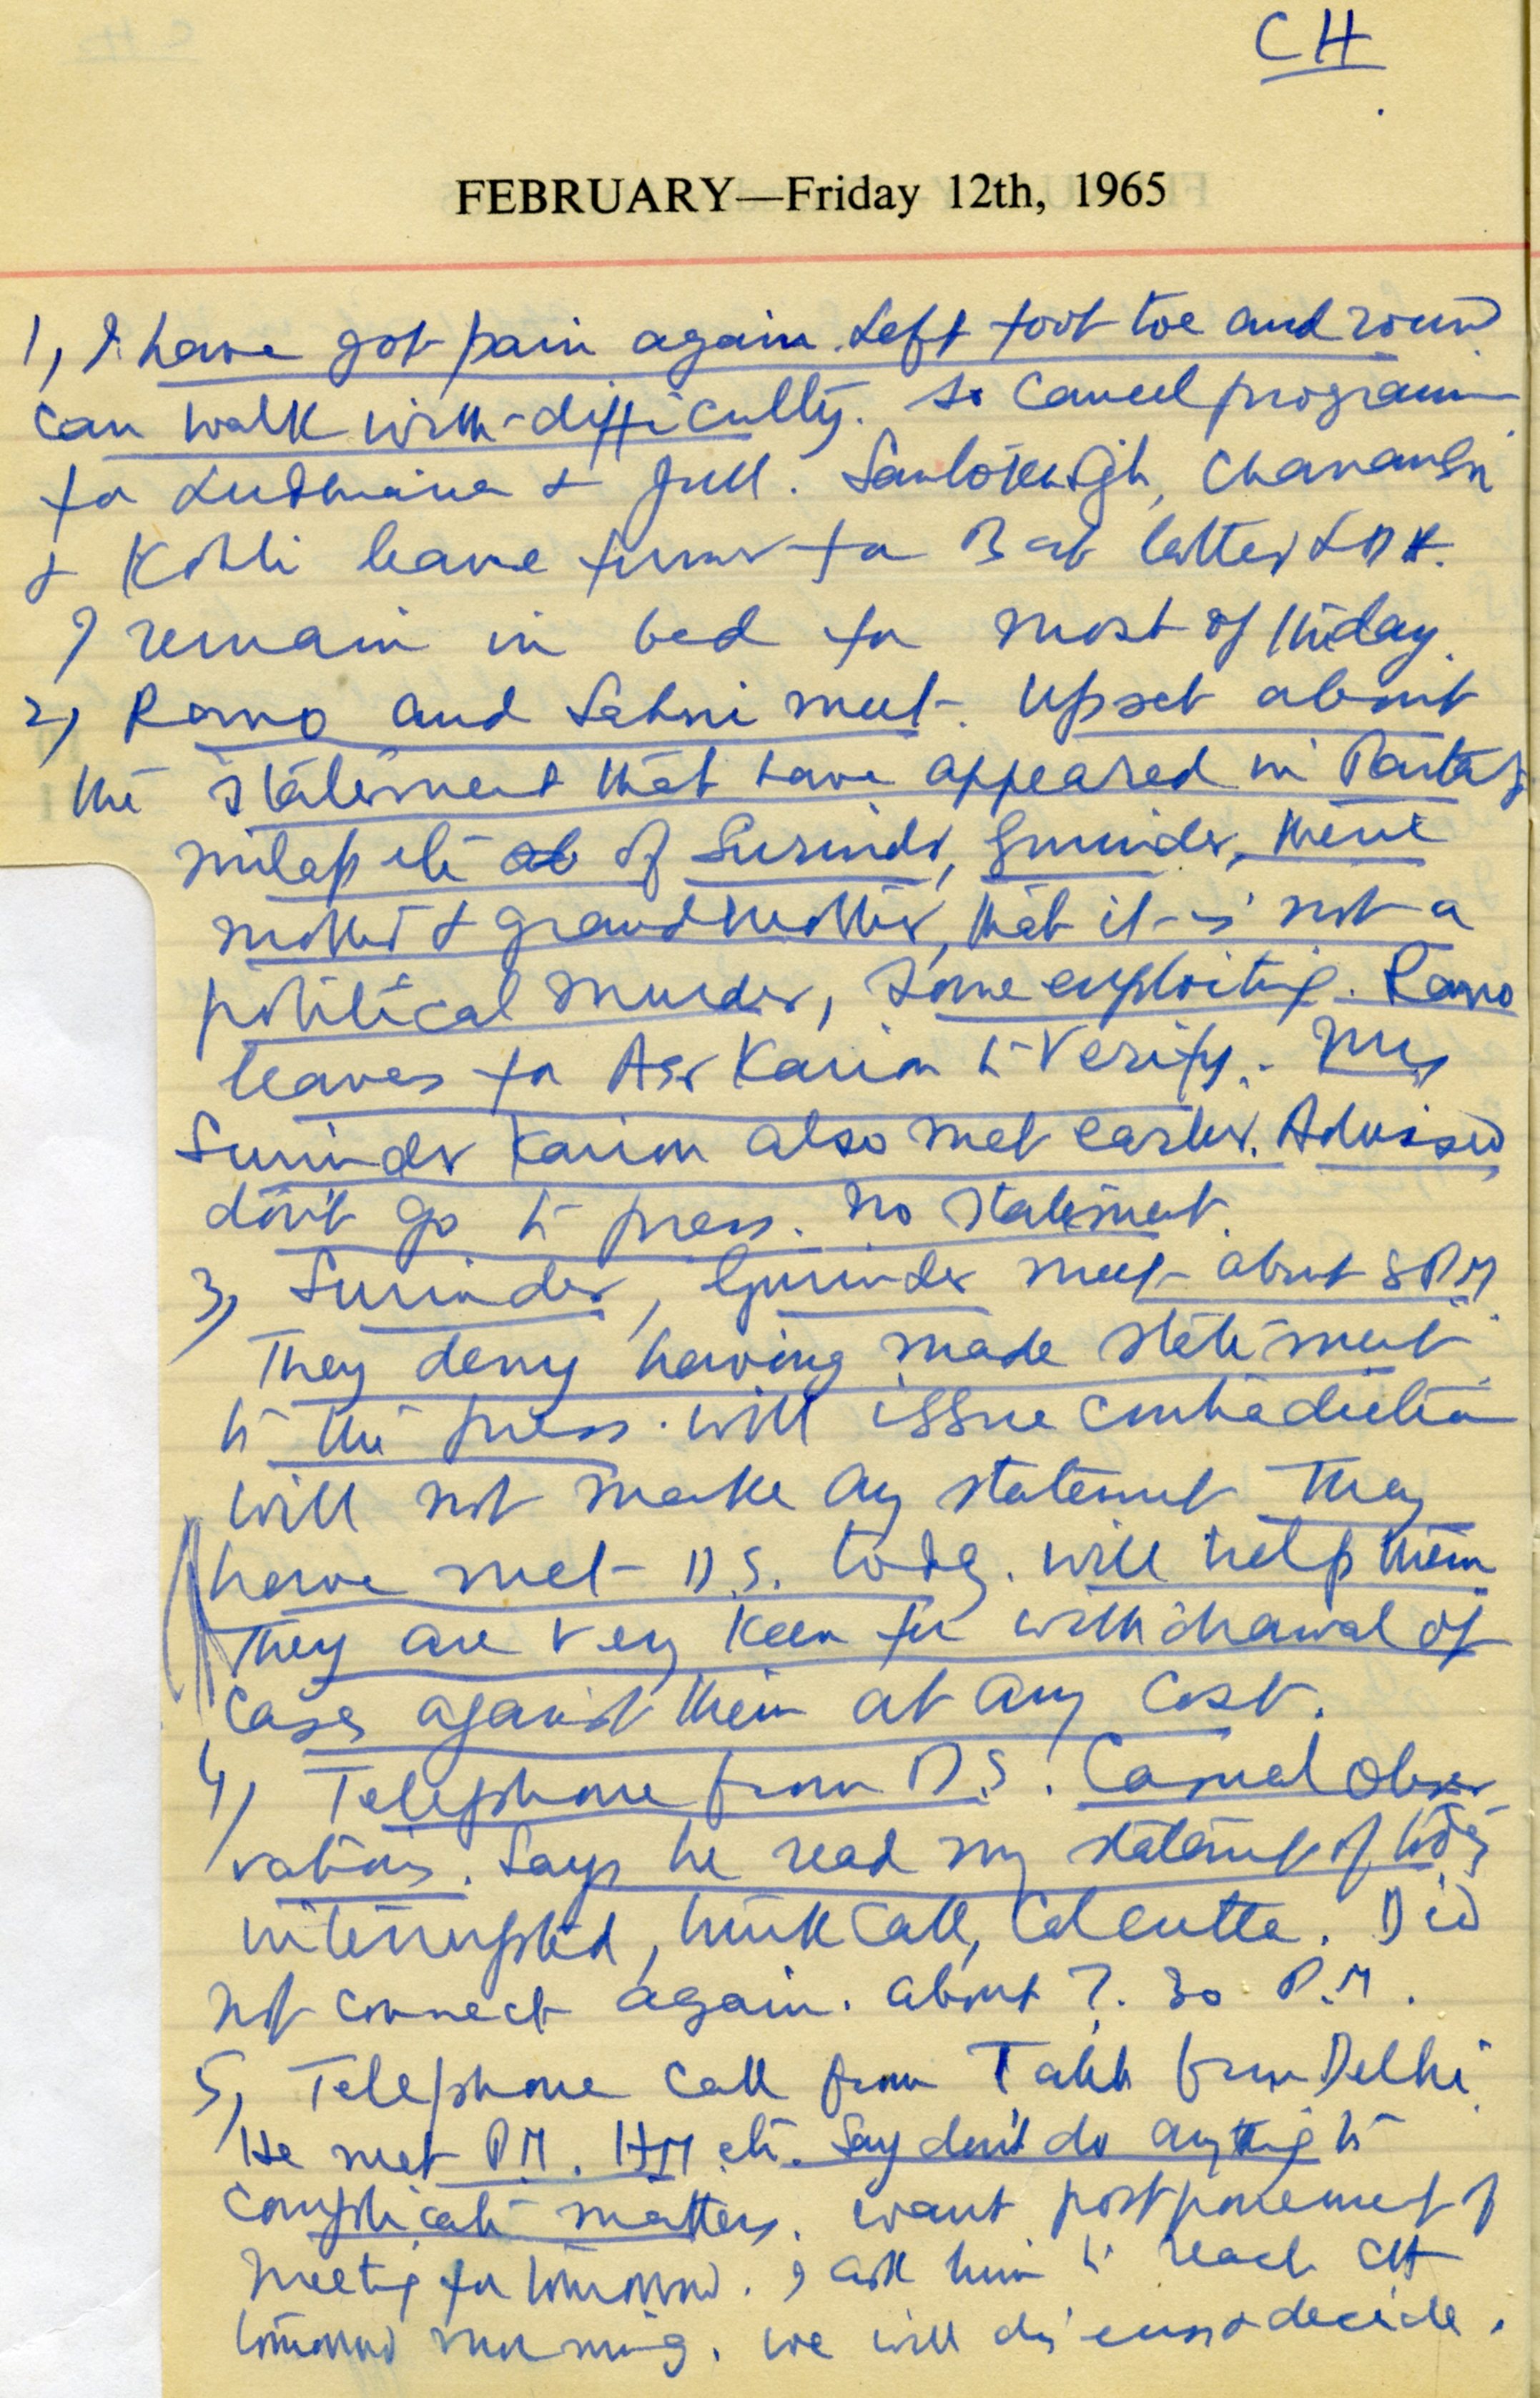 CH
FEBRUARY—Friday 12th, 1965
1, I have got pain again. Left foot toe and round
can walk with difficulty. So cancel program
for Ludhiana & Jull. Santokh Sgh, Chanan Sn
& Kohli leave former for Bat latter LDH.
I remain in bed for most of the day.
2, Romo and Sahni meet. Upset about
the statement that have appeared in Partap
milap etc of Surinder, Gurinder, their
mother & grandmother, that it is not a
political murder, some exploiting. Romo
leaves for Asr Kairon to verify. Mrs
Surinder Kairon also met earlier. Advised
don't go to press. No statement.
3, Surinder, Gurinder meet about 8 P.M.
They deny having made statement
to the press. will issue contradiction
will not make any statement They
have met D.S. today. will help them
They are very keen for withdrawal of
cases against them at any cost.
4, Telephone from D.S. Casual obser
vations. Says he read my statement of today
interrupted, trunk call, Calcutta. Did
not connect again. about 7.30 P.M.
5, Telephone call from Takht from Delhi
He met P.M. HM etc. Say don't do anything to
complicate matters. want postponement of
meeting for tomorrow. I ask him to reach CH
tomorrow morning. we will discuss & decide.